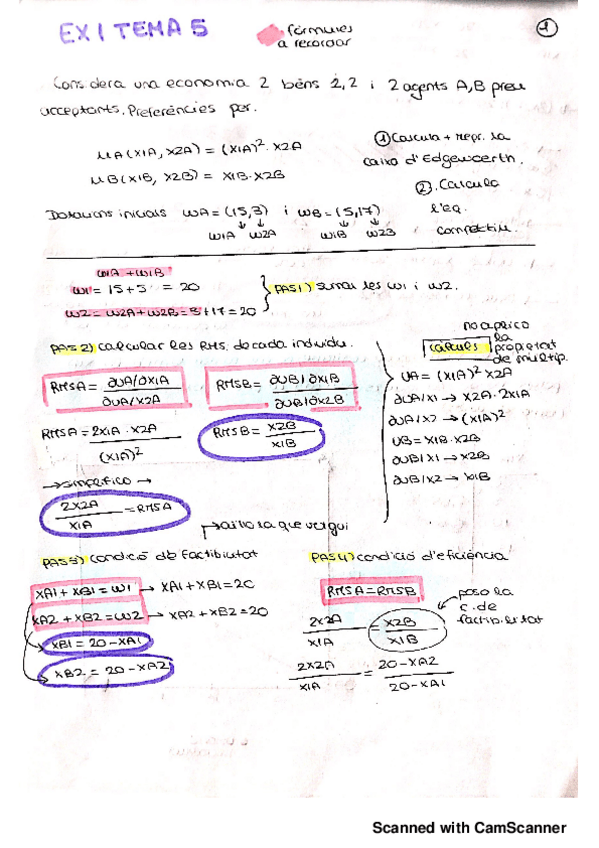 EX 1 TEMA 5
fórmules
a recordar
1
Considera una economia 2 béns 1,2 i 2 agents A,B preu
acceptants. Preferències per.
uA(X1A, X2A) = (X1A)² · X2A
uB(X1B, X2B) = X1B·X2B
① Calcula + repr. la
caixa d'Edgeworth.
②. Calcula
l'eq.
competitiu.
Dotacions inicials wA = (15,3) i wB = (5,17)
w1A w2A w1B w2B
w1A + w1B
w1 = 15+5 = 20
w2 = w2A + w2B = 3+17 = 20
PAS 1) sumar les w1 i w2.
PAS 2) calcular les RMS, de cada individu.
RMSA = ∂UA/∂X1A
∂UA/X2A
RMSB = ∂UB/∂X1B
∂UB/∂X2B
RMSA = 2X1A · X2A
(X1A)²
RMSB = X2B
X1B
→ simplifico →
2X2A = RMSA
X1A
no aplico
la
propietat
de multip.
càlculs
UA = (X1A)² X2A
∂UA/X1 → X2A · 2X1A
∂UA/X2 → (X1A)²
UB = X1B · X2B
∂UB/X1 → X2B
∂UB/X2 → X1B
aïllo la que vulgui
PAS 3) condició de factibilitat
XA1 + XB1 = W1 → XA1 + XB1 = 20
XA2 + XB2 = W2 → XA2 + XB2 = 20
XB1 = 20 - XA1
XB2 = 20 - XA2
PAS 4) condició d'eficiència
RMSA = RMSB
2X2A = X2B
X1A X1B
poso la
c. de
factibilitat
2X2A = 20 - XA2
X1A 20 - XA1
Scanned with CamScanner